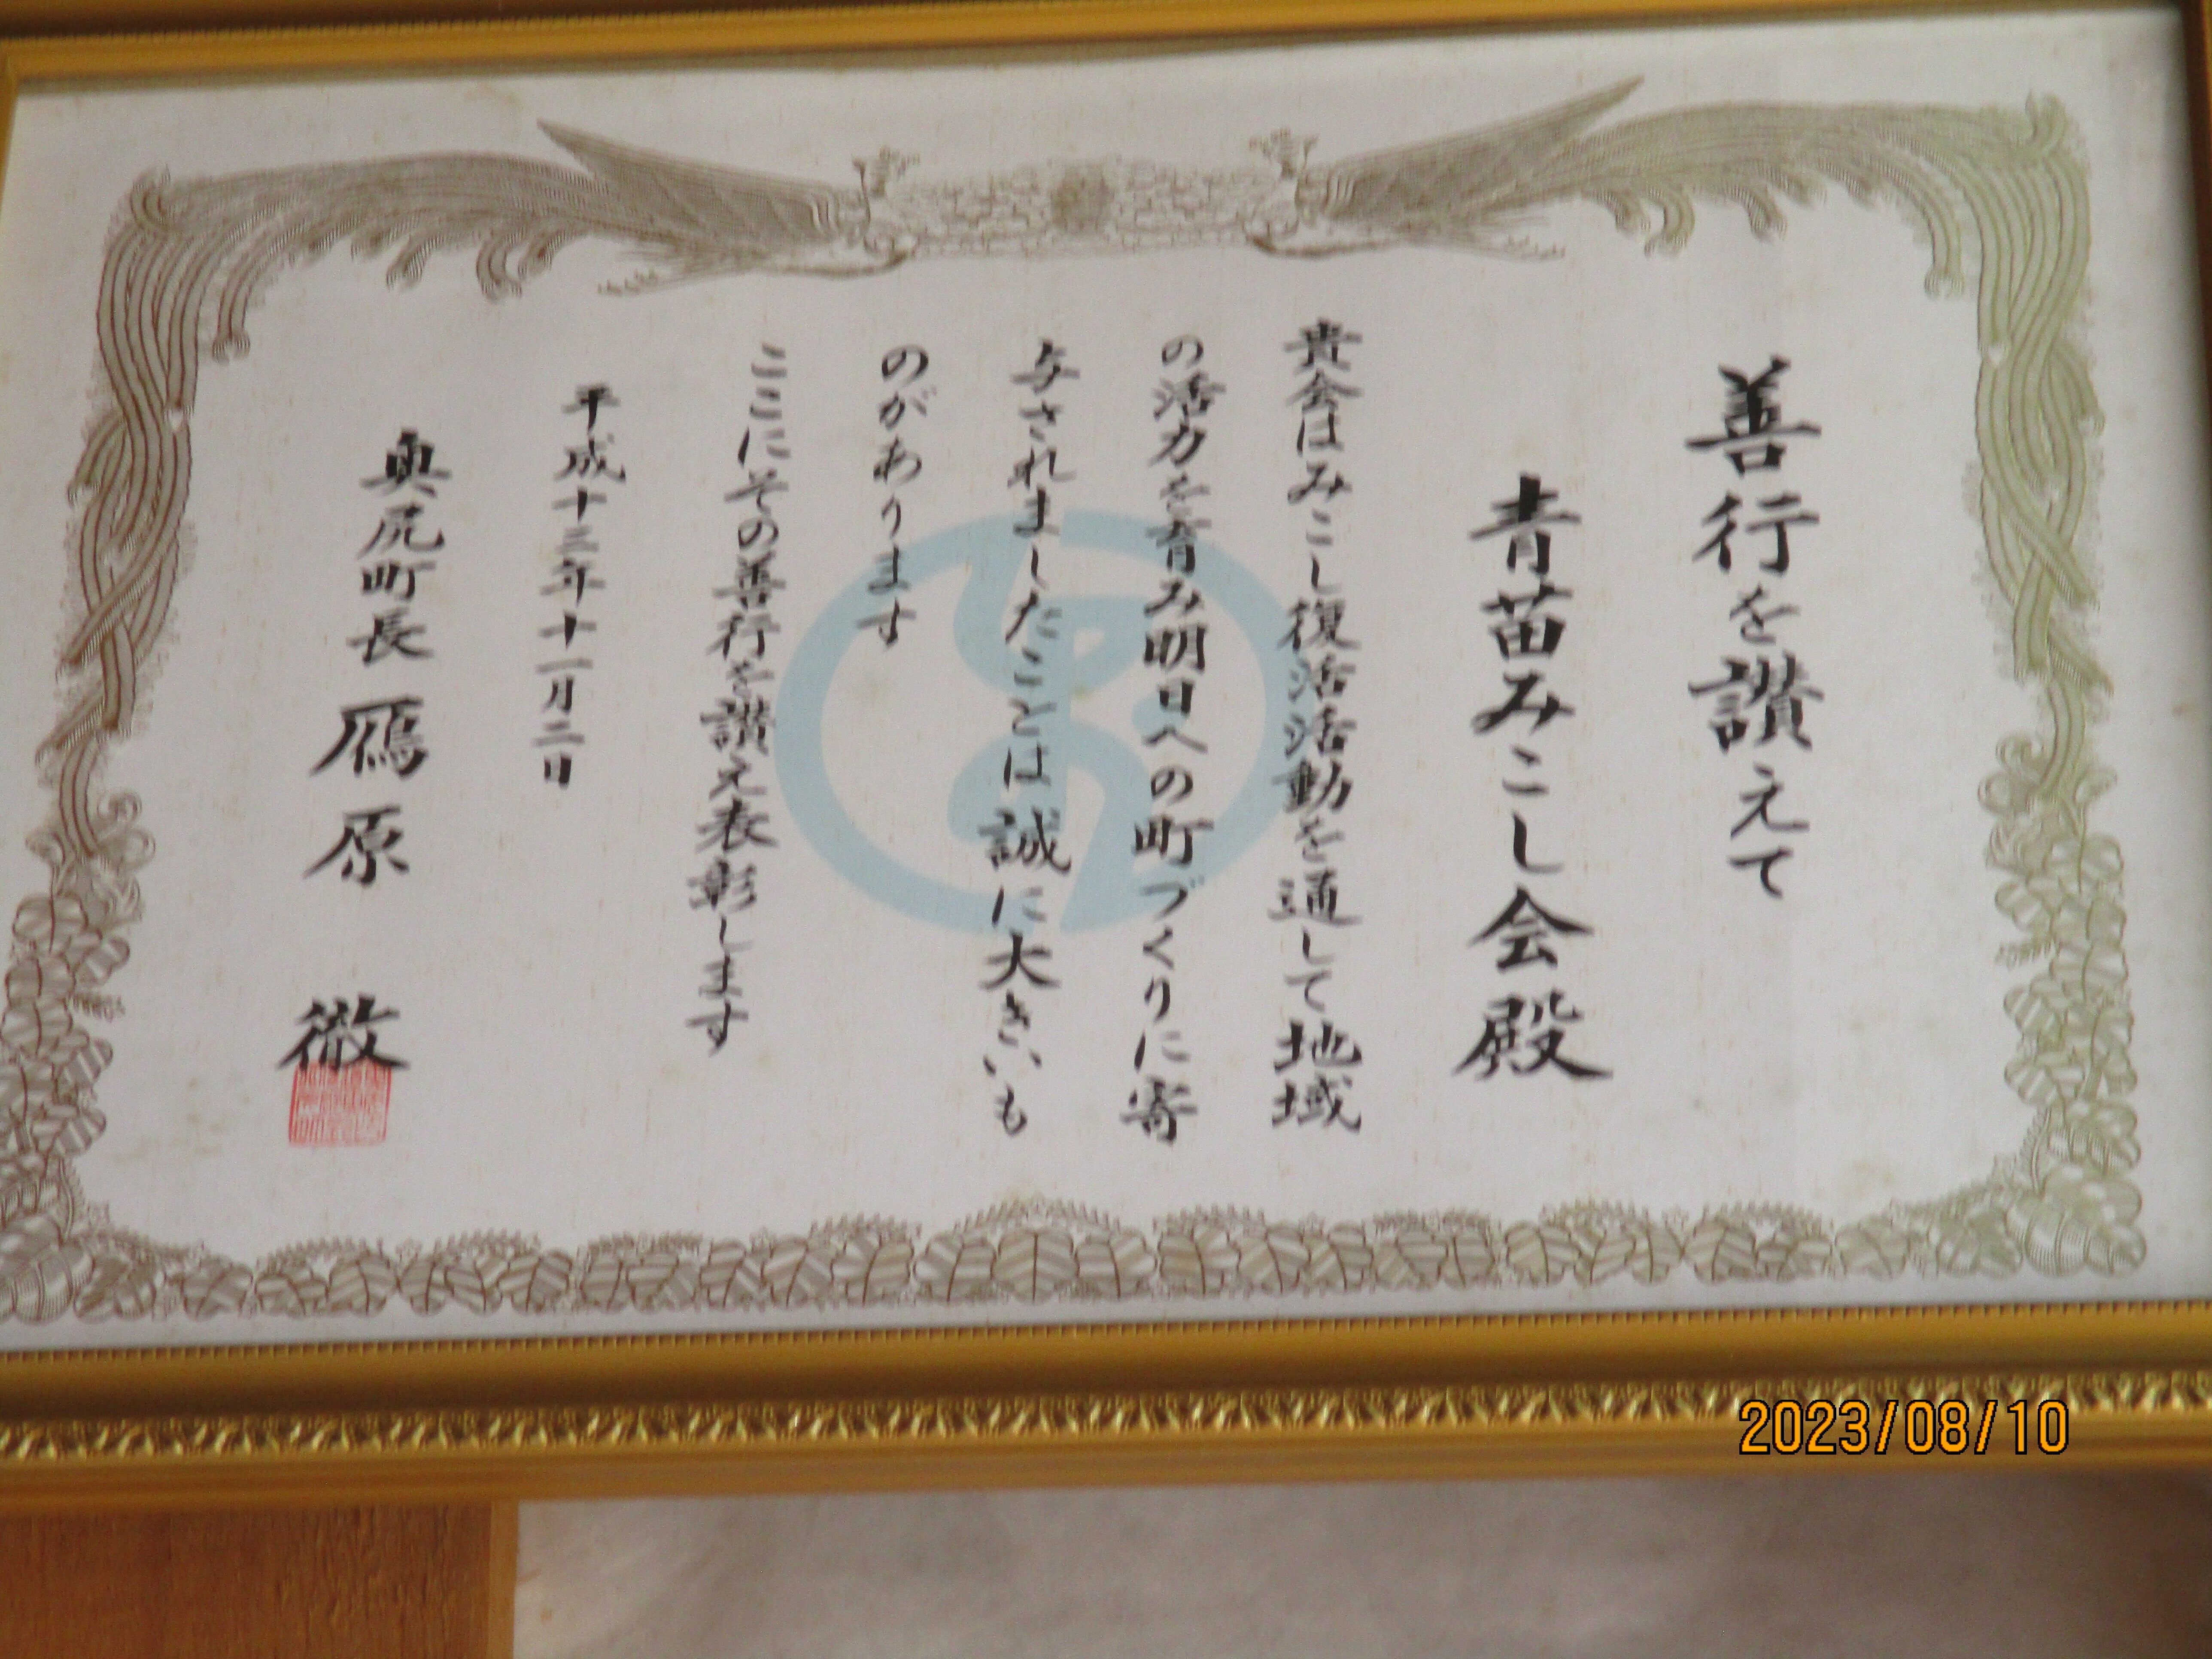 善行を讃えて
青苗みこし会殿
貴会はみこし復活活動を通して地域
の活力を育み明日への町づくりに寄
与されましたことは誠に大きいも
のがあります
ここにその善行を讃え表彰します
平成十三年十一月二日
奥尻町長 鴈原 徹
2023/08/10